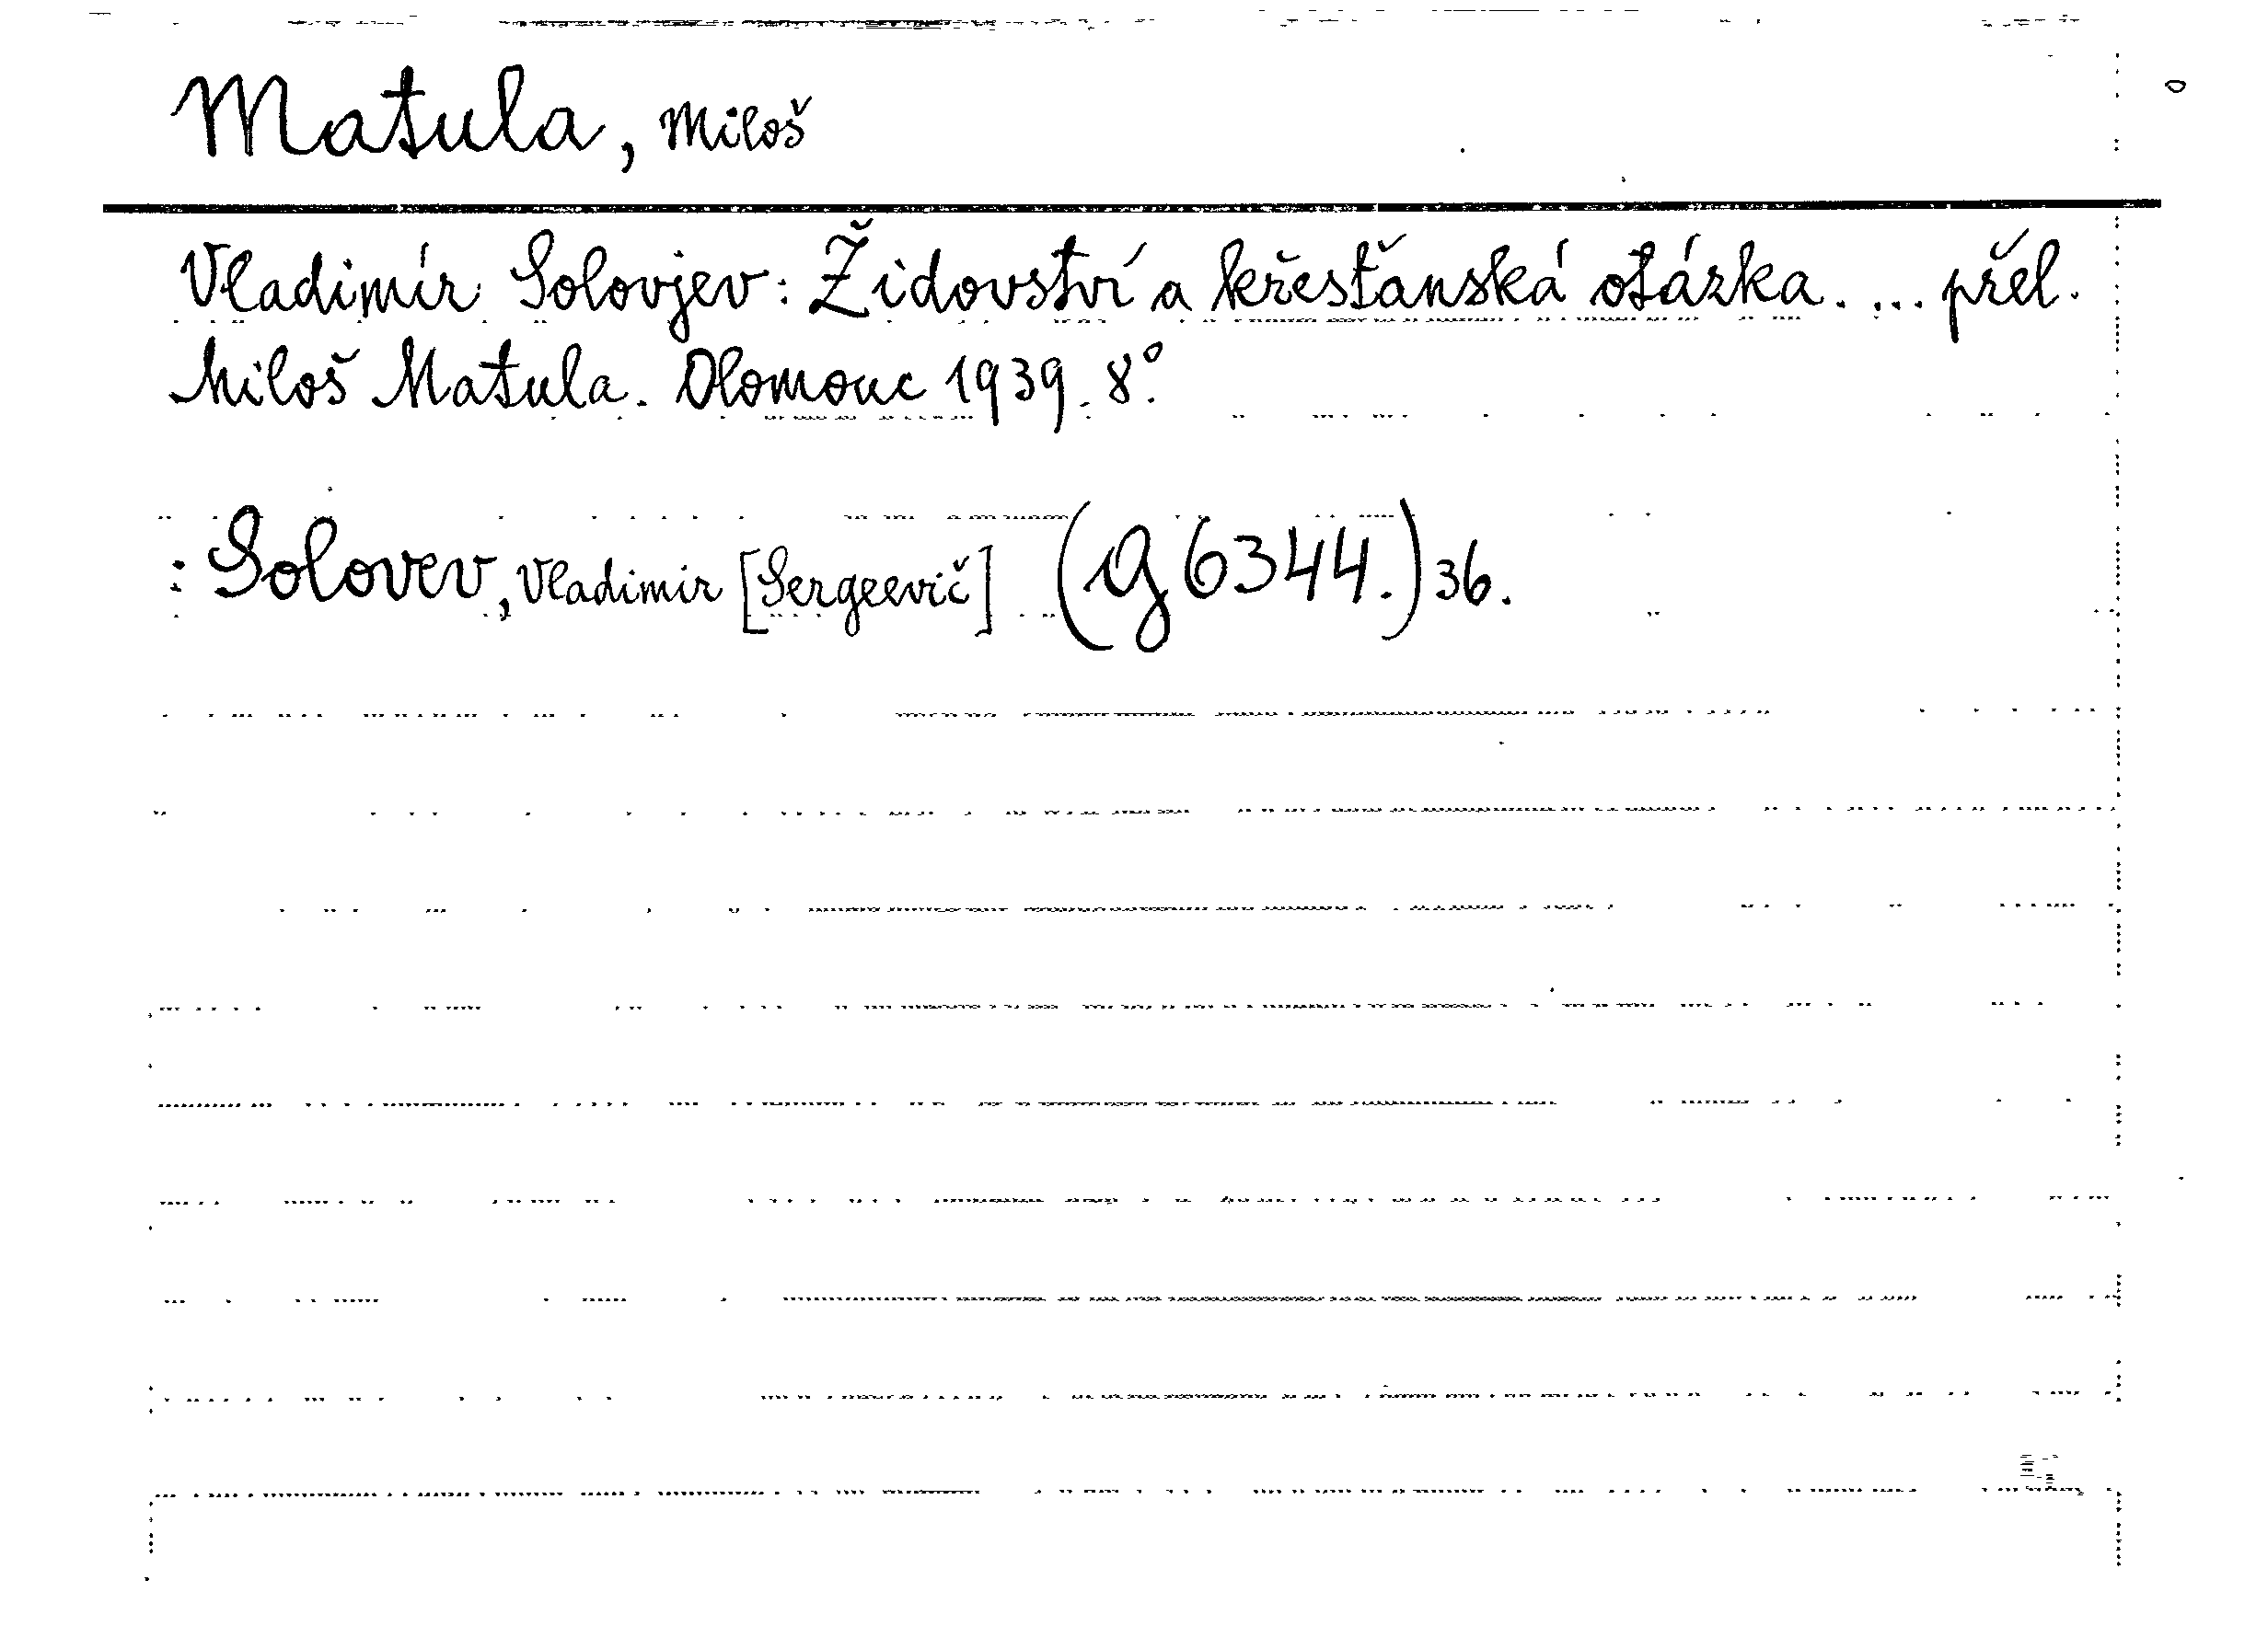 Matula, Miloš
Vladimír Solovjev: Židovství a křesťanská otázka. ... přel.
Miloš Matula. Olomouc 1939. 8°.
: Solovev, Vladimir [Sergeevič] (g 6344.) 36.